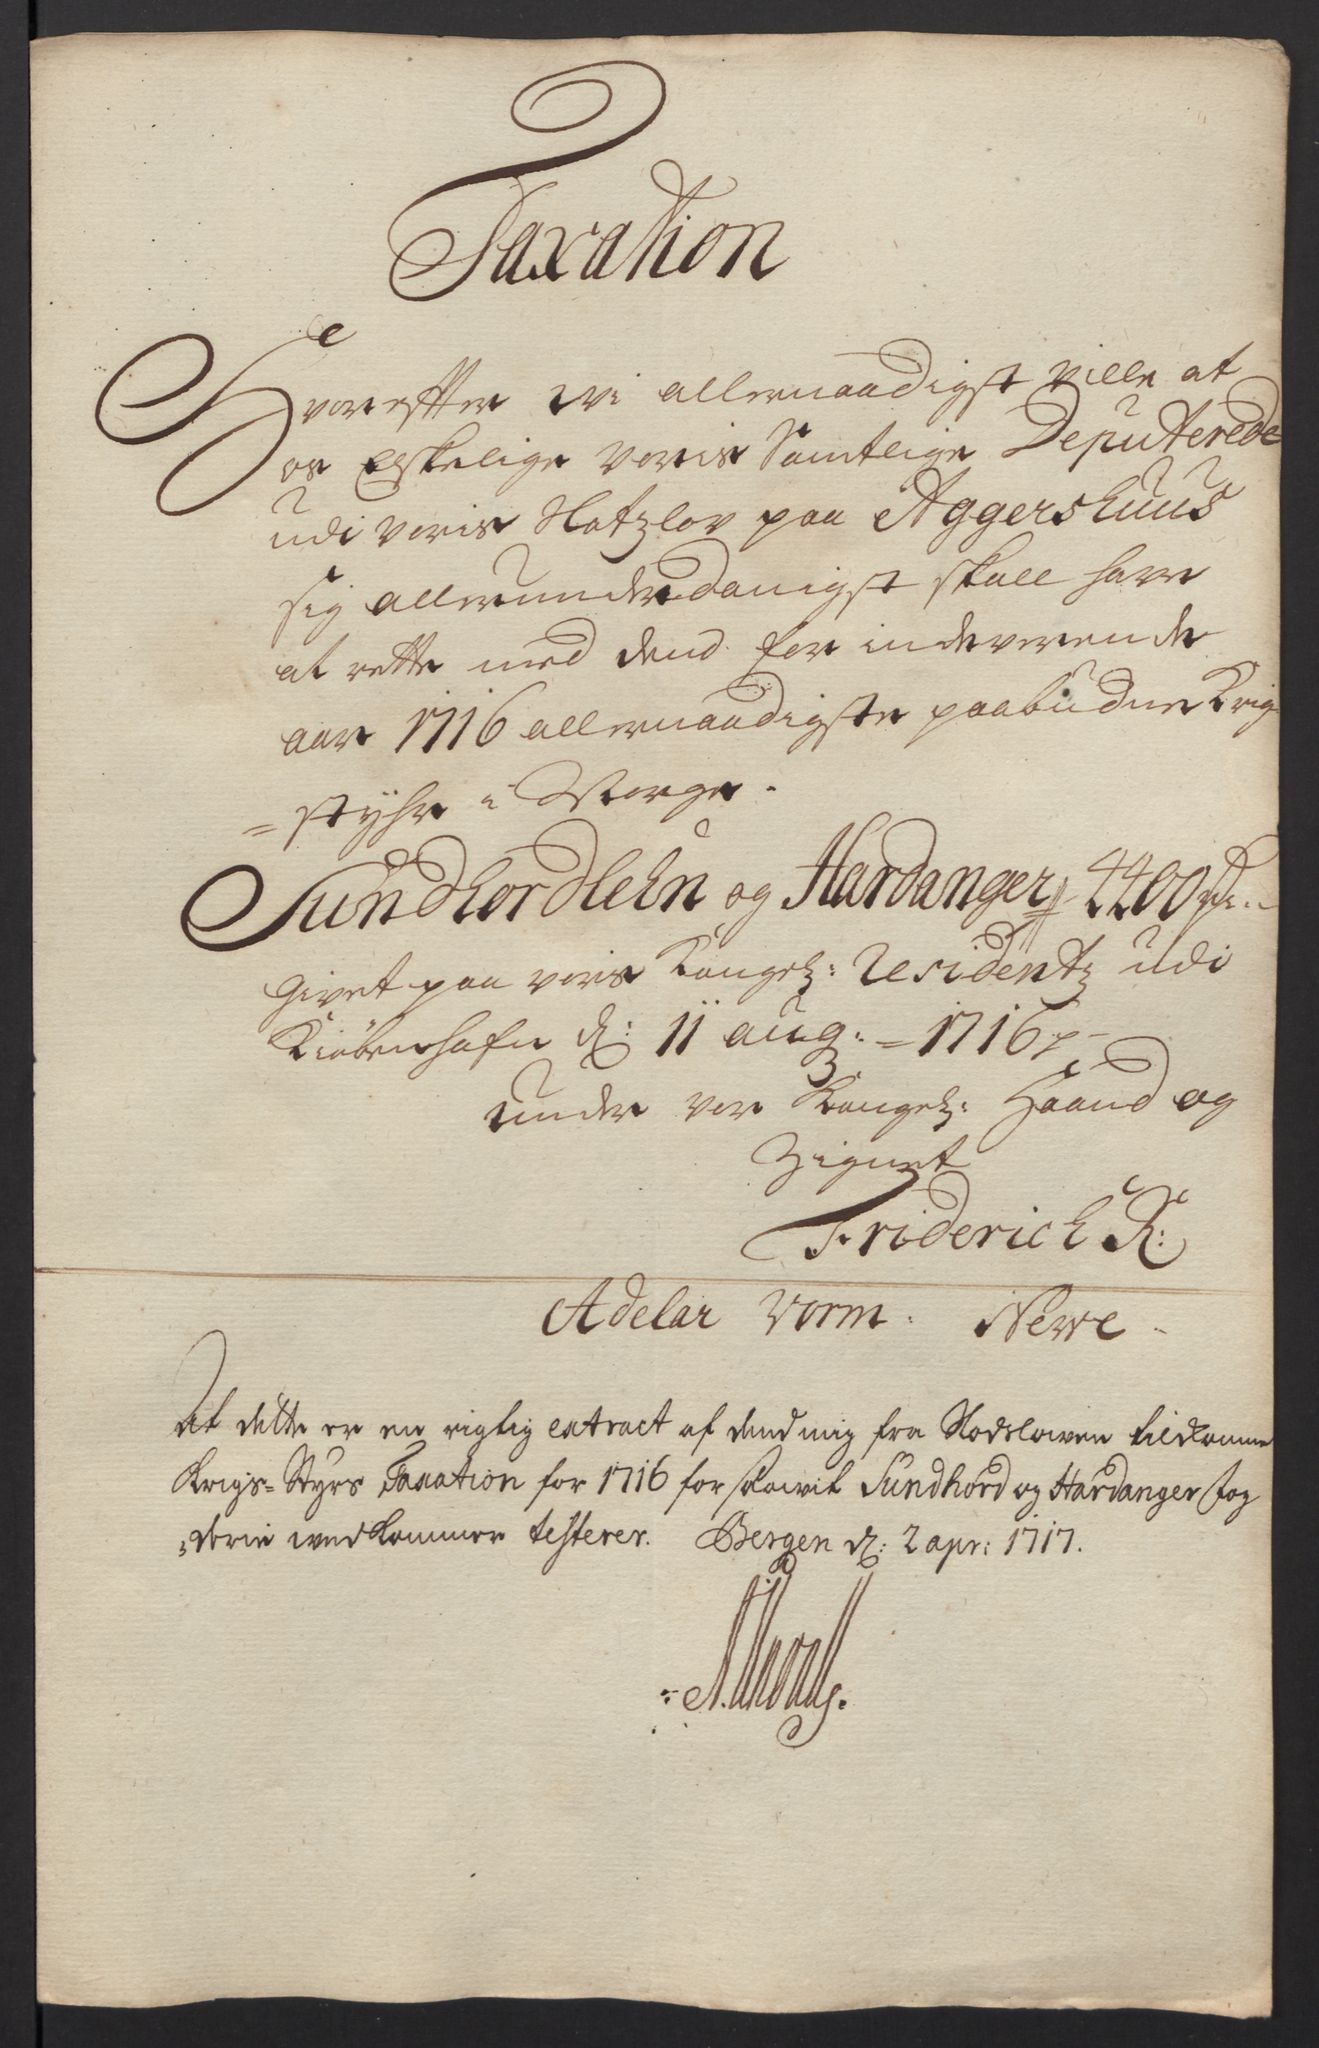 Taxation
Hvorefter Wi allernaadigst ville at
os Elskelige Voris Samtlige Deputerede
udi Voris Slotzlov paa Aggershuus
sig allerunderdanigst skall have
at rette med dend for indeverende
aar 1716 allernaadigste paabudne Krig
= styhr i Norge.
Sundhordlehn og Hardanger 4400 rdr.
Givet paa voris Kongel: Residentz udi
Kiöbenhafn d: 11 aug: = 1716
under vor Kongel: Haand og
Zignet
Friderich R:
Adelar Vorm. Neve
At dette er en rigtig extract af dend mig fra Slodslowen tilkomne
Krigs=Styrs Taxation for 1716 for saavit Sundhord og Hardanger Fog
=derie wedkommer testerer. Bergen d: 2 apr: 1717.